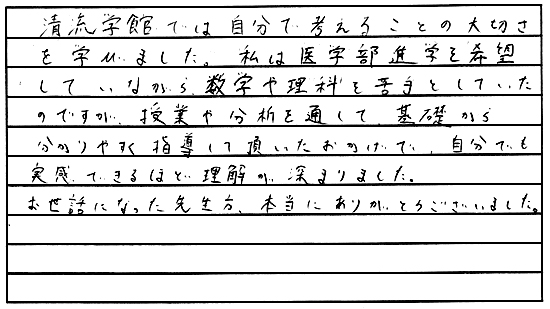 清流学館では自分で考えることの大切さ
を学びました。私は医学部進学を希望
していながら、数学や理科を苦手としていた
のですが、授業や分析を通して、基礎から
分かりやすく指導して頂いたおかげで、自分でも
実感できるほど理解が深まりました。
お世話になった先生方、本当にありがとうございました。